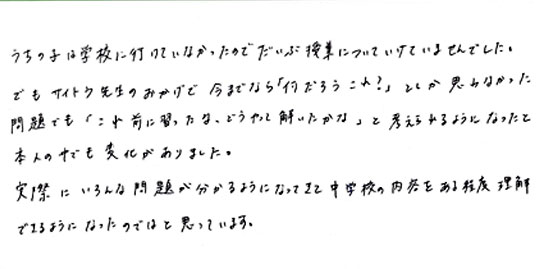 うちの子は学校に行けていなかったのでだいぶ授業についていけていませんでした。
でもサイトウ先生のおかげで今までなら「何だろうこれ?」としか思わなかった
問題でも「これ前に習ったな、どうやって解いたかな」と考えられるようになったと
本人の中でも変化がありました。
実際にいろんな問題が分かるようになってきて中学校の内容をある程度理解
できるようになったのではと思っています。